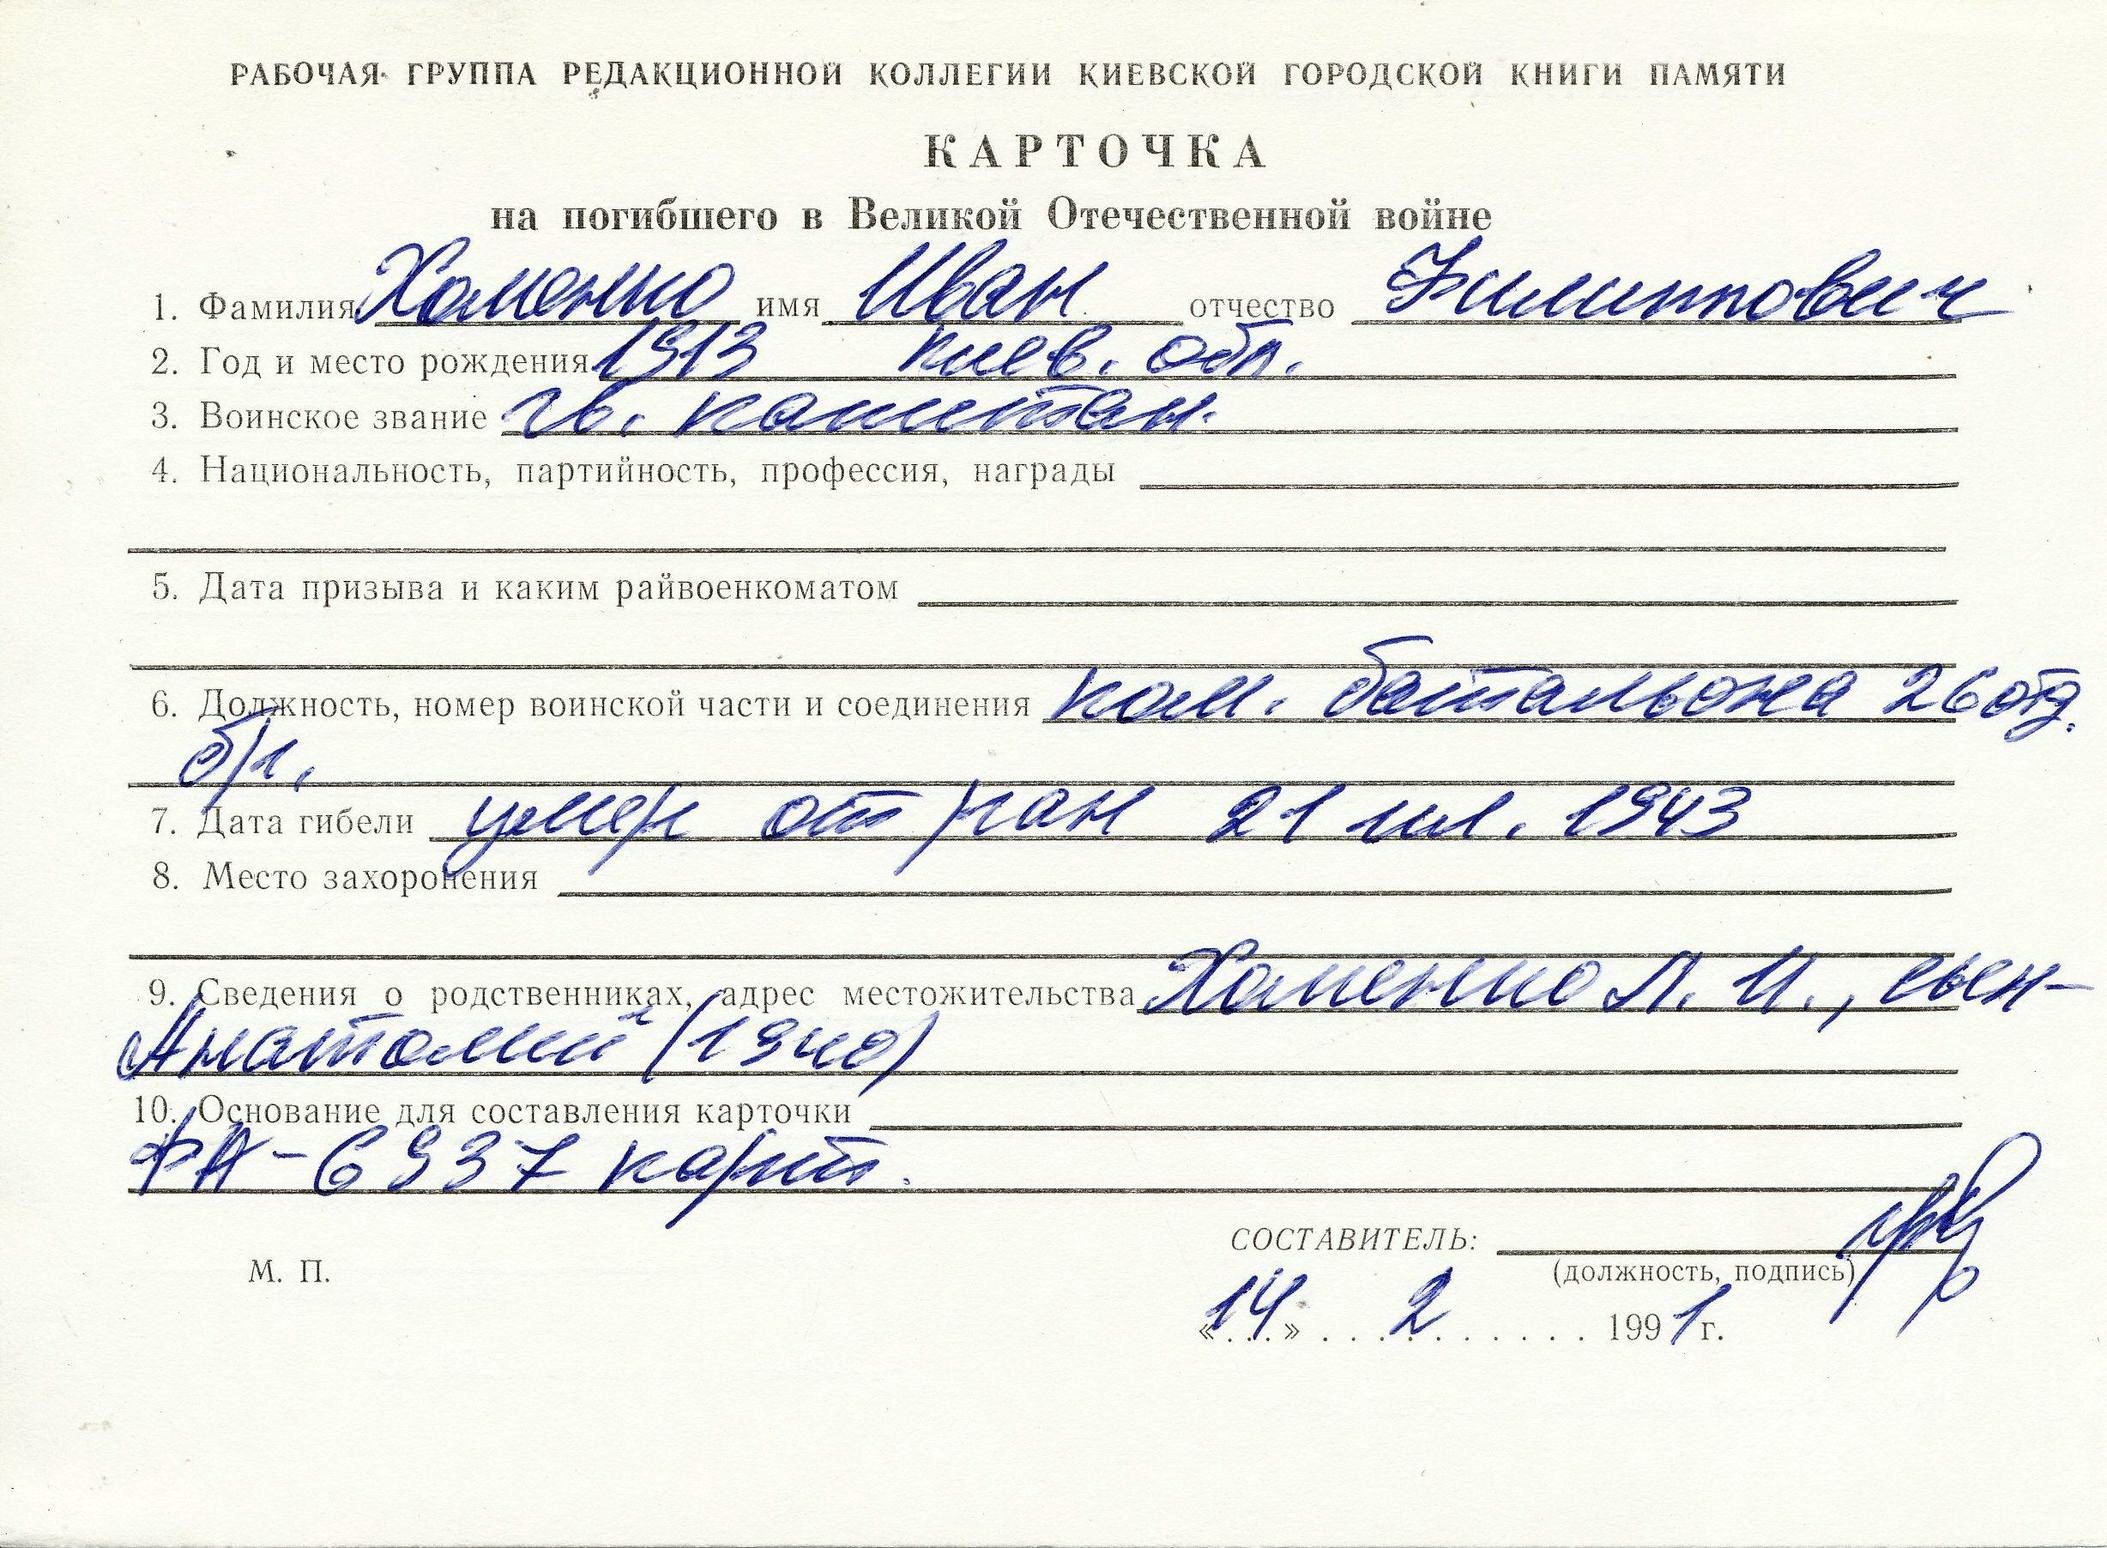 РАБОЧАЯ ГРУППА РЕДАКЦИОННОЙ КОЛЛЕГИИ КИЕВСКОЙ ГОРОДСКОЙ КНИГИ ПАМЯТИ
КАРТОЧКА
на погибшего в Великой Отечественной войне
1. Фамилия Хоменко имя Иван отчество Филиппович
2. Год и место рождения 1913 Киев. обл.
3. Воинское звание гв. капитан.
4. Национальность, партийность, профессия, награды
5. Дата призыва и каким райвоенкоматом
6. Должность, номер воинской части и соединения ком. батальона 26 отд.
бр.
7. Дата гибели умер от ран 21 июл. 1943
8. Место захоронения
9. Сведения о родственниках, адрес местожительства Хоменко Л. И., сын-
Анатолий (1940)
10. Основание для составления карточки
ФА-6937 карт.
СОСТАВИТЕЛЬ:
М. П.
(должность, подпись)
«14» 2 1991 г.